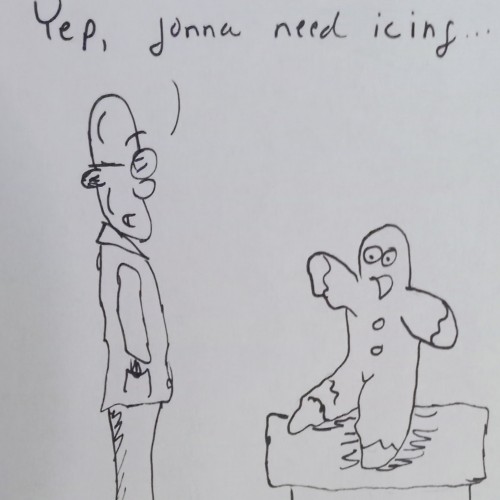 Yep, gonna need icing...